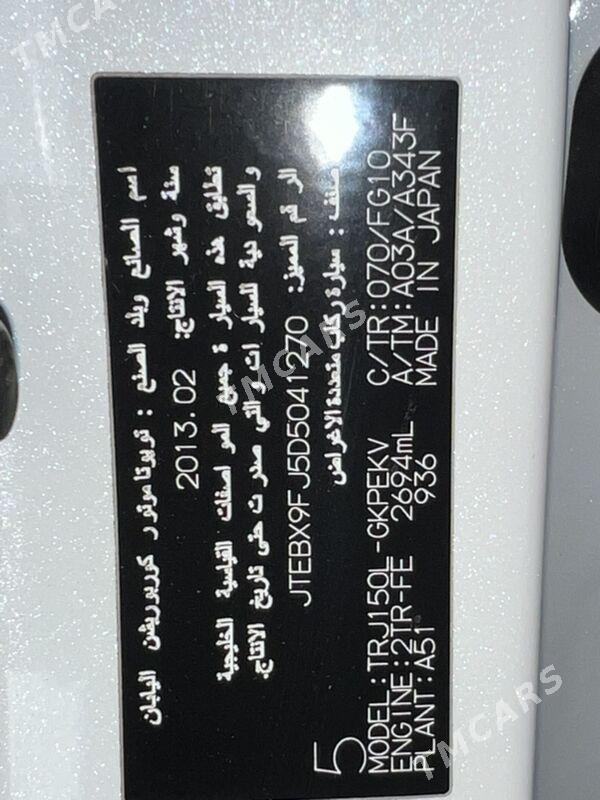 اسم الصانع وبلد الصنع : تويوتا موتور كوربوريشن اليابان
سنة وشهر الانتاج: 2013.02
تطابق هذه السيارة جميع المواصفات القياسية الخليجية
والسعودية للسيارات والتي صدرت حتى تاريخ الانتاج.
الرقم المميز: JTEBX9FJ5D5041270
صنف : سيارة ركاب متعددة الاغراض
5
MODEL:TRJ150L-GKPEKV C/TR:070/FG10
ENGINE:2TR-FE 2694mL A/TM:A03A/A343F
PLANT:A51 936 MADE IN JAPAN
TMCARS
TMCARS
TMCARS
TMCARS